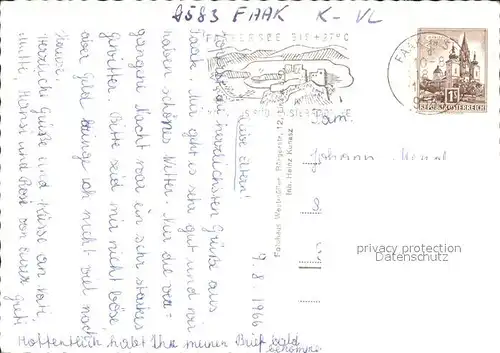 9583 FAAK K-VL
FAAKERSEE BIS +27°C
SEID
FAAK
1S
REPUBLIK ÖSTERREICH
9.8.1966
Liebe Eltern!
die herzlichsten Grüße aus
Faak. Mir geht's sehr gut und wir
haben schönes Wetter. Nur die ver-
gangene Nacht war ein sehr starkes
Gewitter. Bitte seid mir nicht böse
aber Geld bringe ich nicht viel nach
Hause.
Herzliche Grüße und Küsse an Vati,
Mutti, Hansi und Rosi von eurer
Greti
Hoffentlich habt Ihr meinen Brief bald
bekommen
Fotohaus
Inh. Heinz
Fam.
Johann
privacy protection
watermark